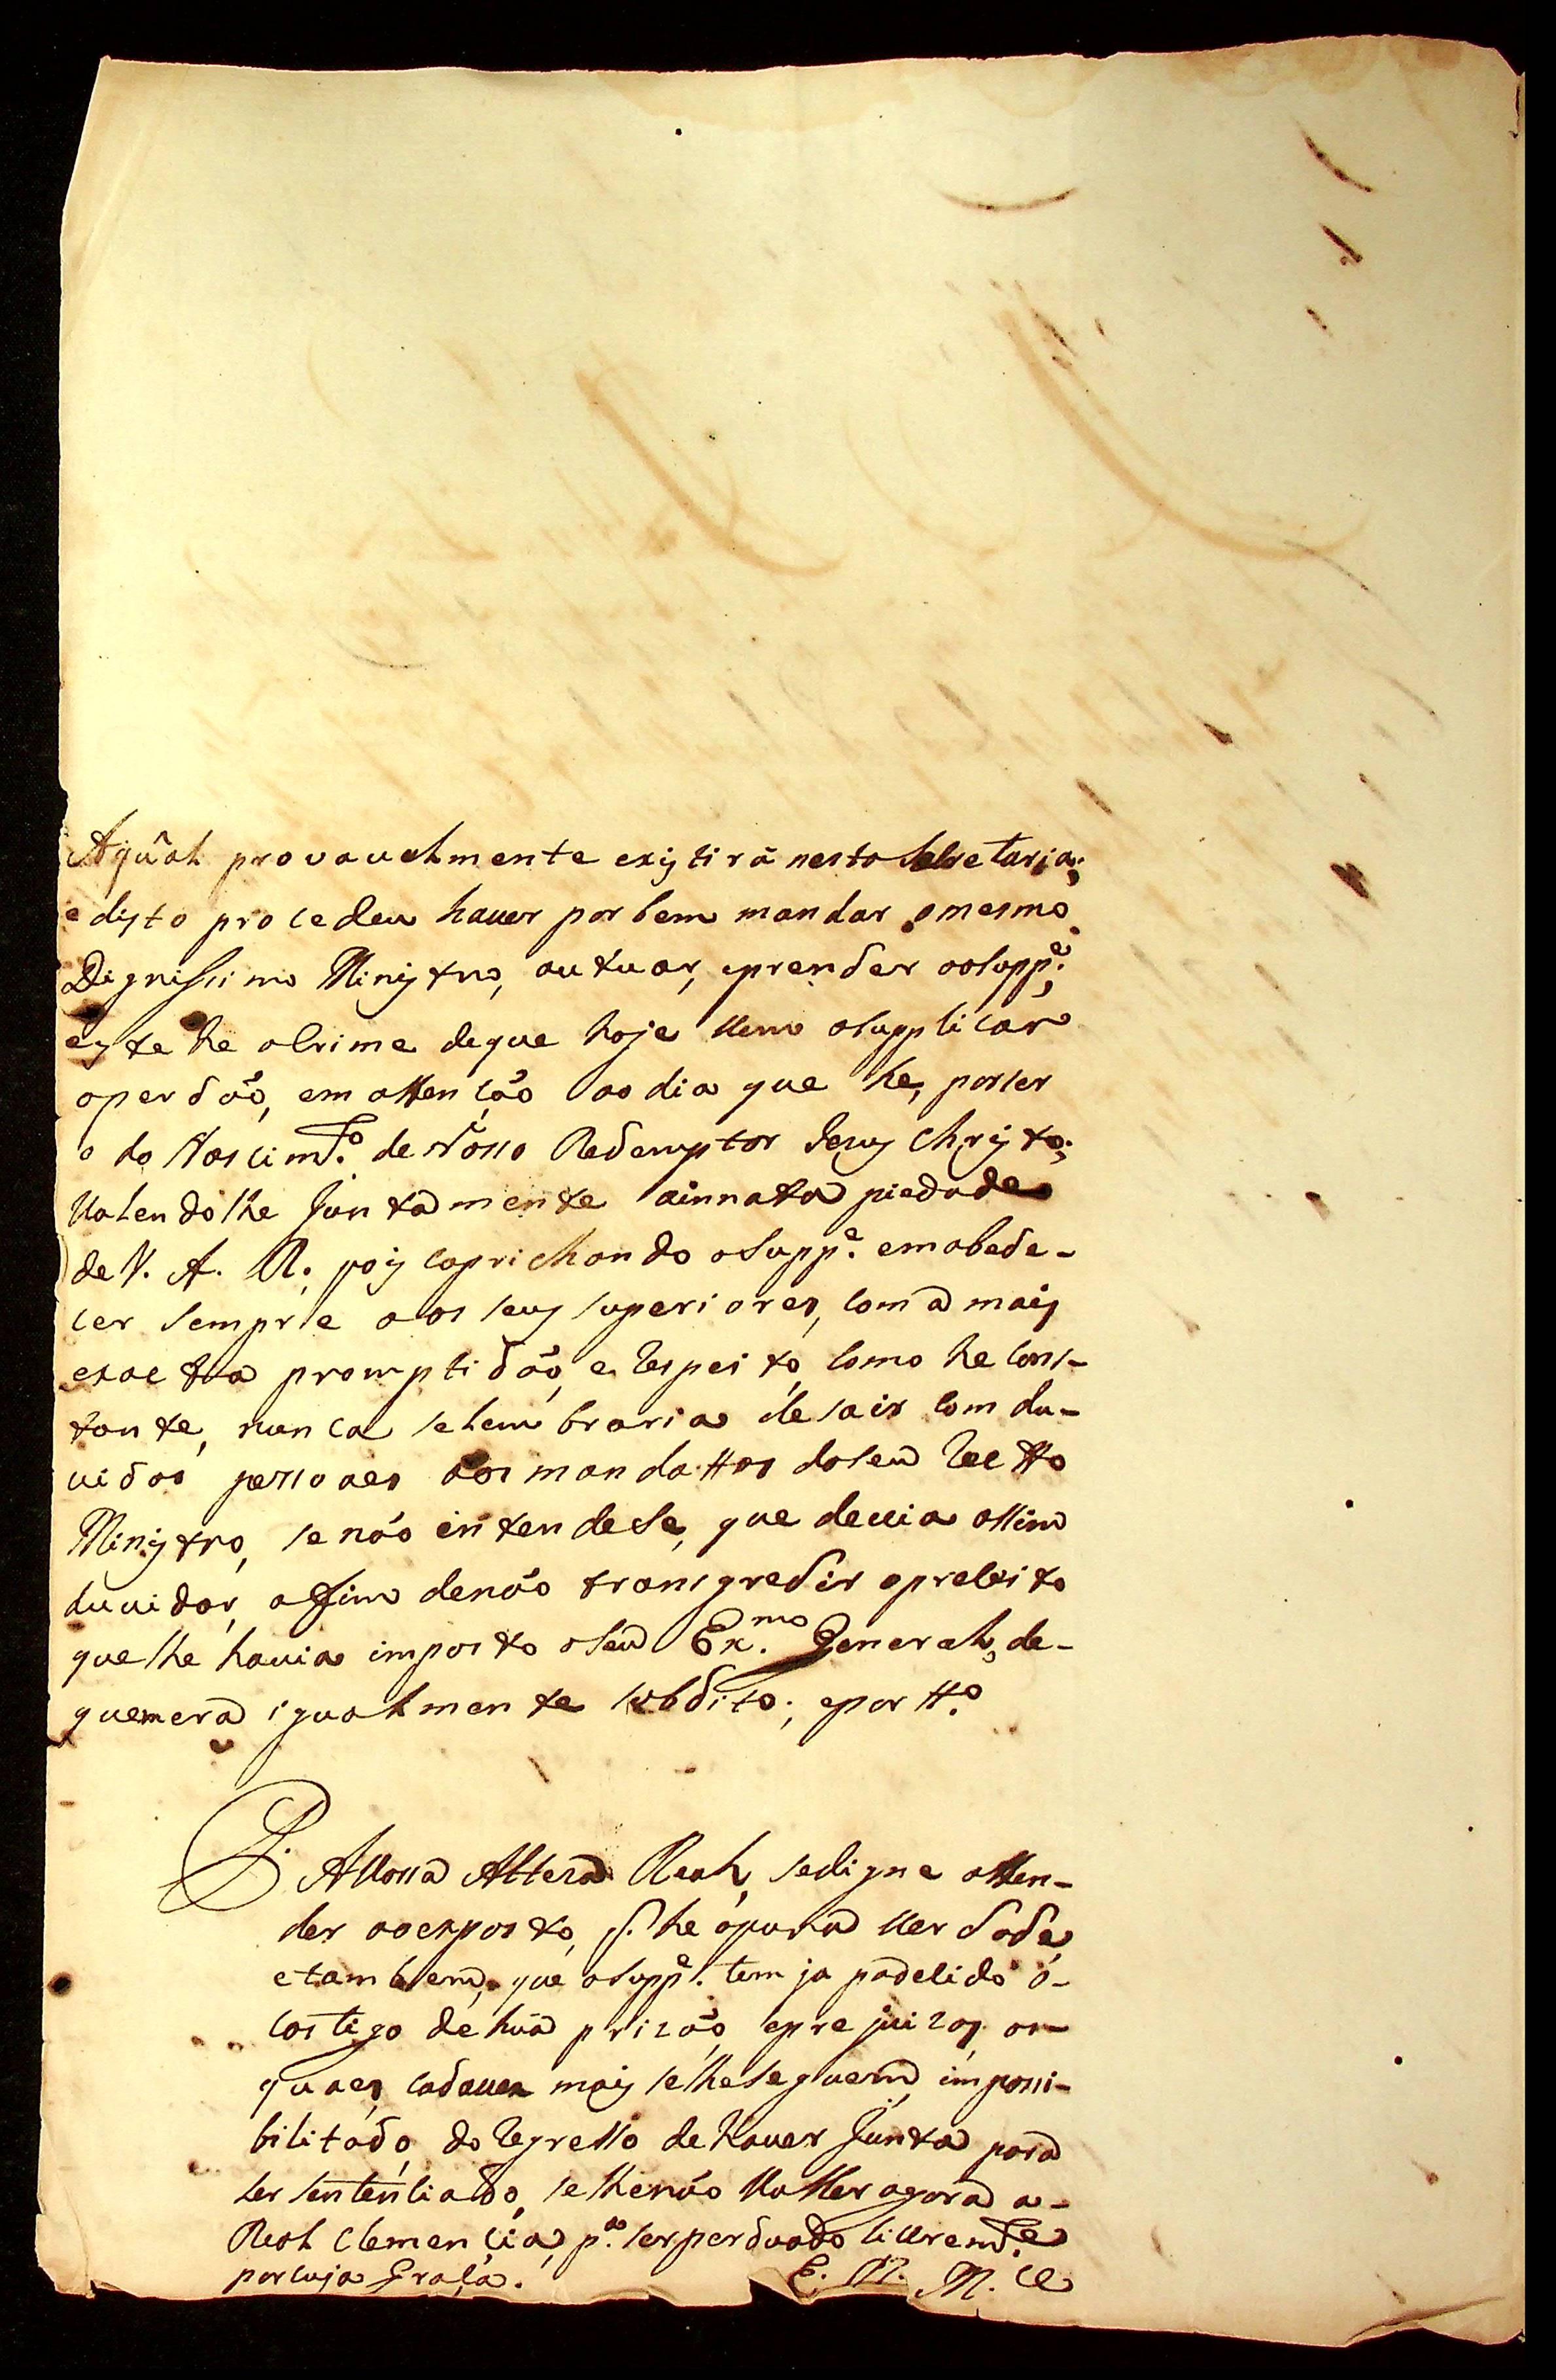 Aquál provavelmente existirá nesta Secretaria;
e disto procedeu haver porbem mandar, omesmo
Dignissimo Ministro, autuar, eprender aosupp.e;
este he oCrime deque hoje vem osupplicar
operdáo, em attençáo aodia que he, porser
o do Nascim.to de Nosso Redemptor Jezus Christo;
Valendolhe Juntamente ainnata piedade
de V. A. R. pois caprichando osupp.e emobede-
cer sempre aos seus superiores, com a mais
exacta promptidáo, e respeito, como he cons-
tante, nunca selembraria de sair com du-
vidas pessoaes aos mandattos doseu recto
Ministro, se náo entendese, que devia assim
duvidar, affim denáo transgredir opreceito
que lhe havia imposto oseu Ex.mo General, de-
quemera igualmente subdito; epor tt.o
P. AVossa Alteza Real, sedigne atten-
der aoexposto, p. he apura verdade,
etambem, que osupp.e tem ja padecido o-
castigo de húa prizáo, eprejuizos, os-
quaes, cadavez mais selheseguem, impossi-
bilitado, do regresso dehaver Junta para
ser sentenciado, selhenáo Valler agora a-
Real Clemencia, p.a serperdoado livrem.te
porcuja Graça.
E. R. M. ce